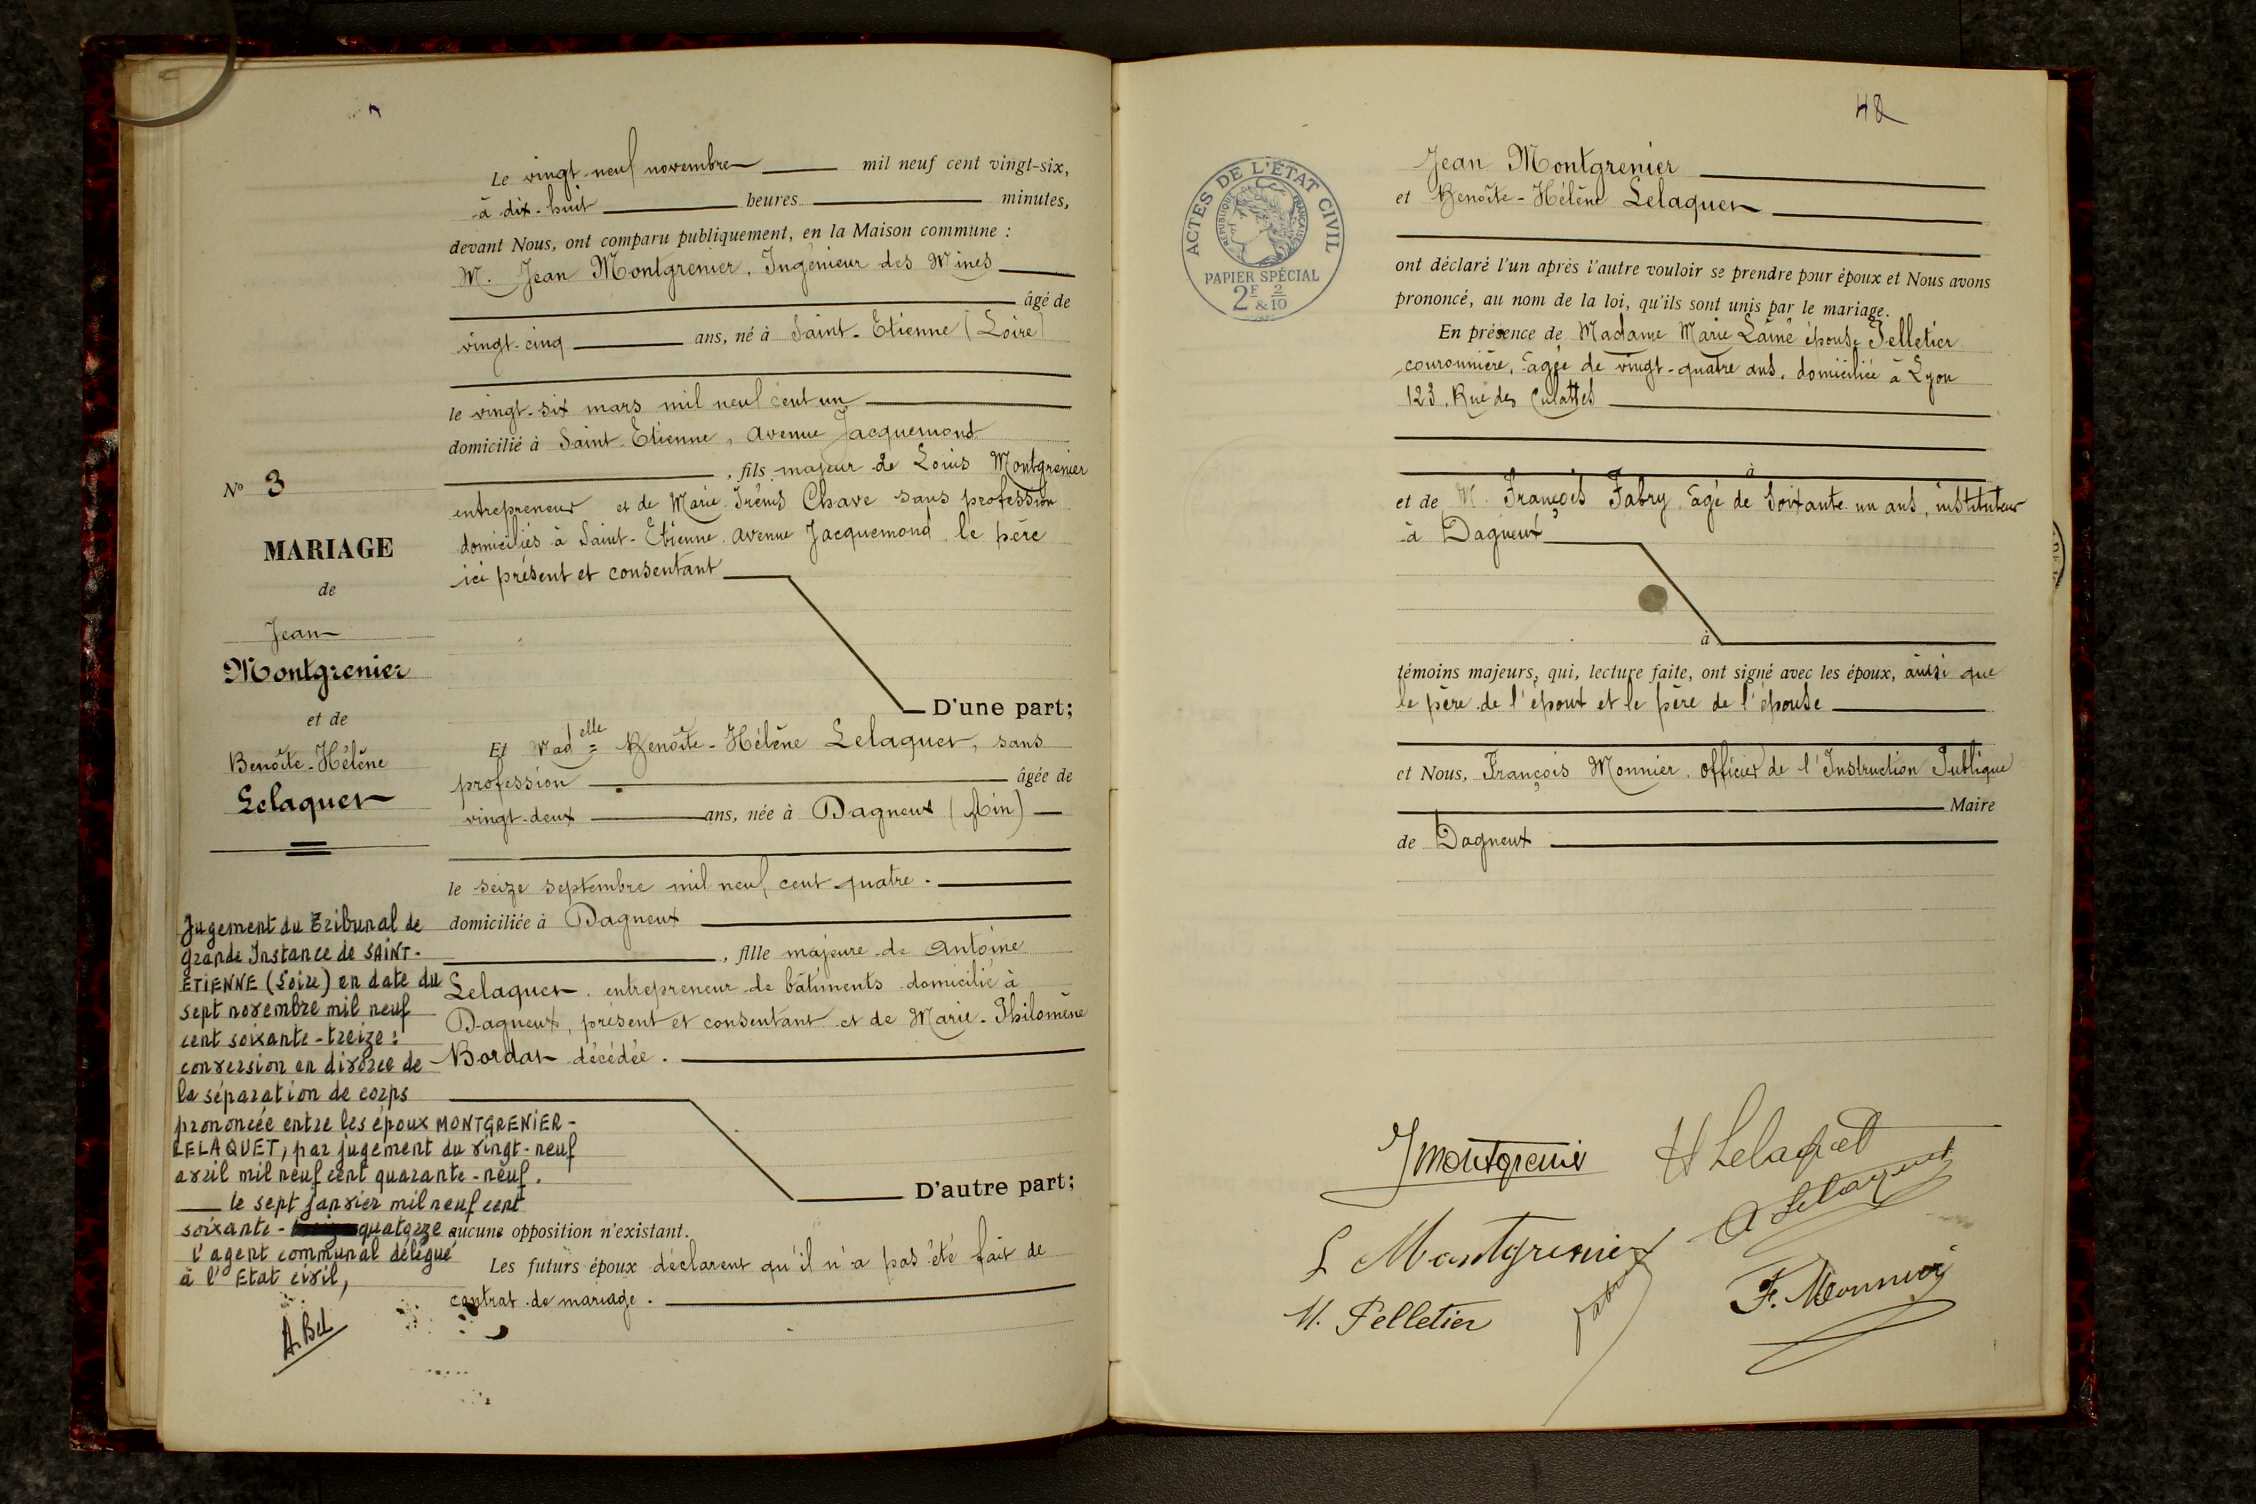 Le vingt-neuf novembre mil neuf cent vingt-six,
à dix-huit heures minutes,
devant Nous, ont comparu publiquement, en la Maison commune :
M. Jean Montgrenier, Ingénieur des Mines
âgé de
vingt-cinq ans, né à Saint-Etienne (Loire)
le vingt-six mars mil neuf cent un
domicilié à Saint-Etienne, avenue Jacquemond
, fils majeur de Louis Montgrenier
entrepreneur et de Marie Chave sans profession
domiciliés à Saint-Etienne, avenue Jacquemond, le père
ici présent et consentant
D'une part;
Et Mad elle Benoîte-Hélène Lelaquet, sans
profession âgée de
vingt-deux ans, née à Dagneux (Ain)
le seize septembre mil neuf cent quatre.
domiciliée à Dagneux
, fille majeure de Antoine
Lelaquet, entrepreneur de bâtiments domicilié à
Dagneux, présent et consentant et de Marie-Philomène
Bordat décédée.
D'autre part;
aucune opposition n'existant.
Les futurs époux déclarent qu'il n'a pas été fait de
contrat de mariage.
No 3
MARIAGE
de
Jean
Montgrenier
et de
Benoîte-Hélène
Lelaquet
Jugement du Tribunal de
grande Instance de SAINT-
ETIENNE (Loire) en date du
sept novembre mil neuf
cent soixante-treize :
conversion en divorce de
la séparation de corps
prononcée entre les époux MONTGRENIER-
LELAQUET, par jugement du vingt-neuf
avril mil neuf cent quarante-neuf.
le sept janvier mil neuf cent
soixante-quatorze
l'agent communal délégué
à l'Etat civil,
42
ACTES DE L'ÉTAT CIVIL
RÉPUBLIQUE FRANÇAISE
PAPIER SPÉCIAL
2F & 2/10
Jean Montgrenier
et Benoîte-Hélène Lelaquet
ont déclaré l'un après l'autre vouloir se prendre pour époux et Nous avons
prononcé, au nom de la loi, qu'ils sont unis par le mariage.
En présence de Madame Marie Lainé épouse Pelletier
couronnière, âgée de vingt-quatre ans, domiciliée à Lyon
123, Rue des Culattes
à
et de M. François Fabry, âgé de soixante un ans, instituteur
à Dagneux
à
témoins majeurs, qui, lecture faite, ont signé avec les époux, ainsi que
le père de l'époux et le père de l'épouse
et Nous, François Monnier, officier de l'Instruction Publique
Maire
de Dagneux
J Montgrenier
H Lelaquet
A Lelaquet
L Montgrenier
Fabry
F. Monnier
M. Pelletier